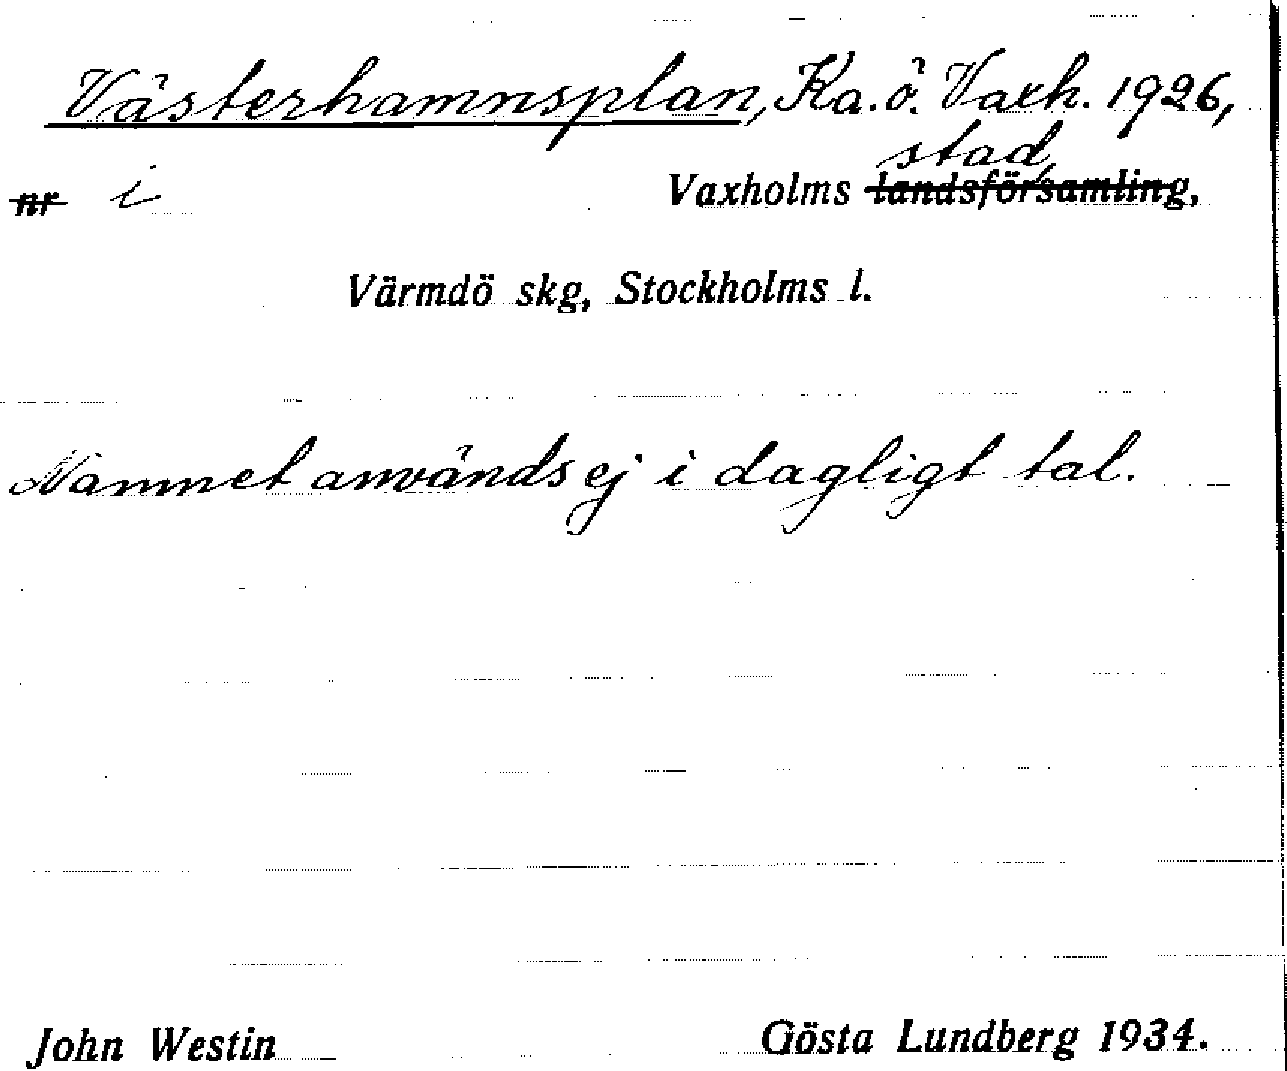 Västerhamnsplan, Ka. ö. Vaxh. 1926,
stad,
nr i Vaxholms landsförsamling,
Värmdö skg, Stockholms l.
Namnet används ej i dagligt tal.
John Westin Gösta Lundberg 1934.